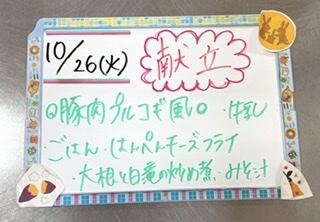 10/26(火)
献立
◎豚肉プルコギ風◎ ・牛乳
・ごはん・はんぺんチーズフライ
・大根と白菜の炒め煮・みそ汁